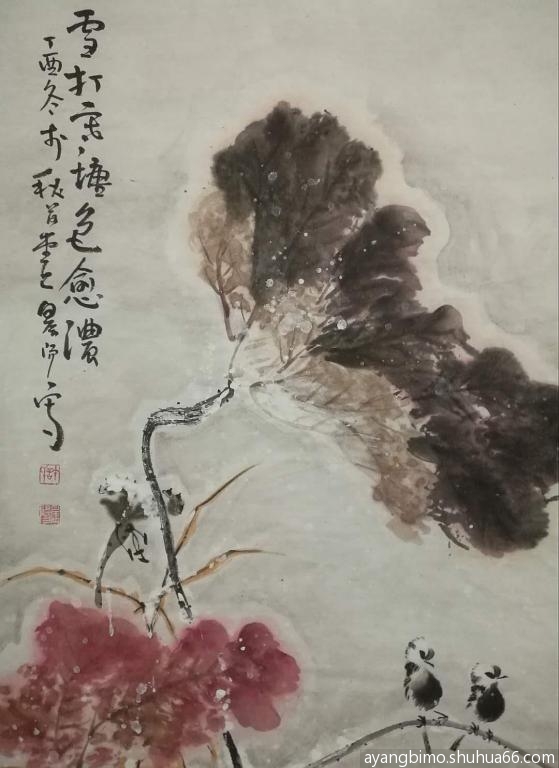 雪打寒塘色愈濃
丁酉冬於秋堂寫
ayangbimo.shuhua66.com